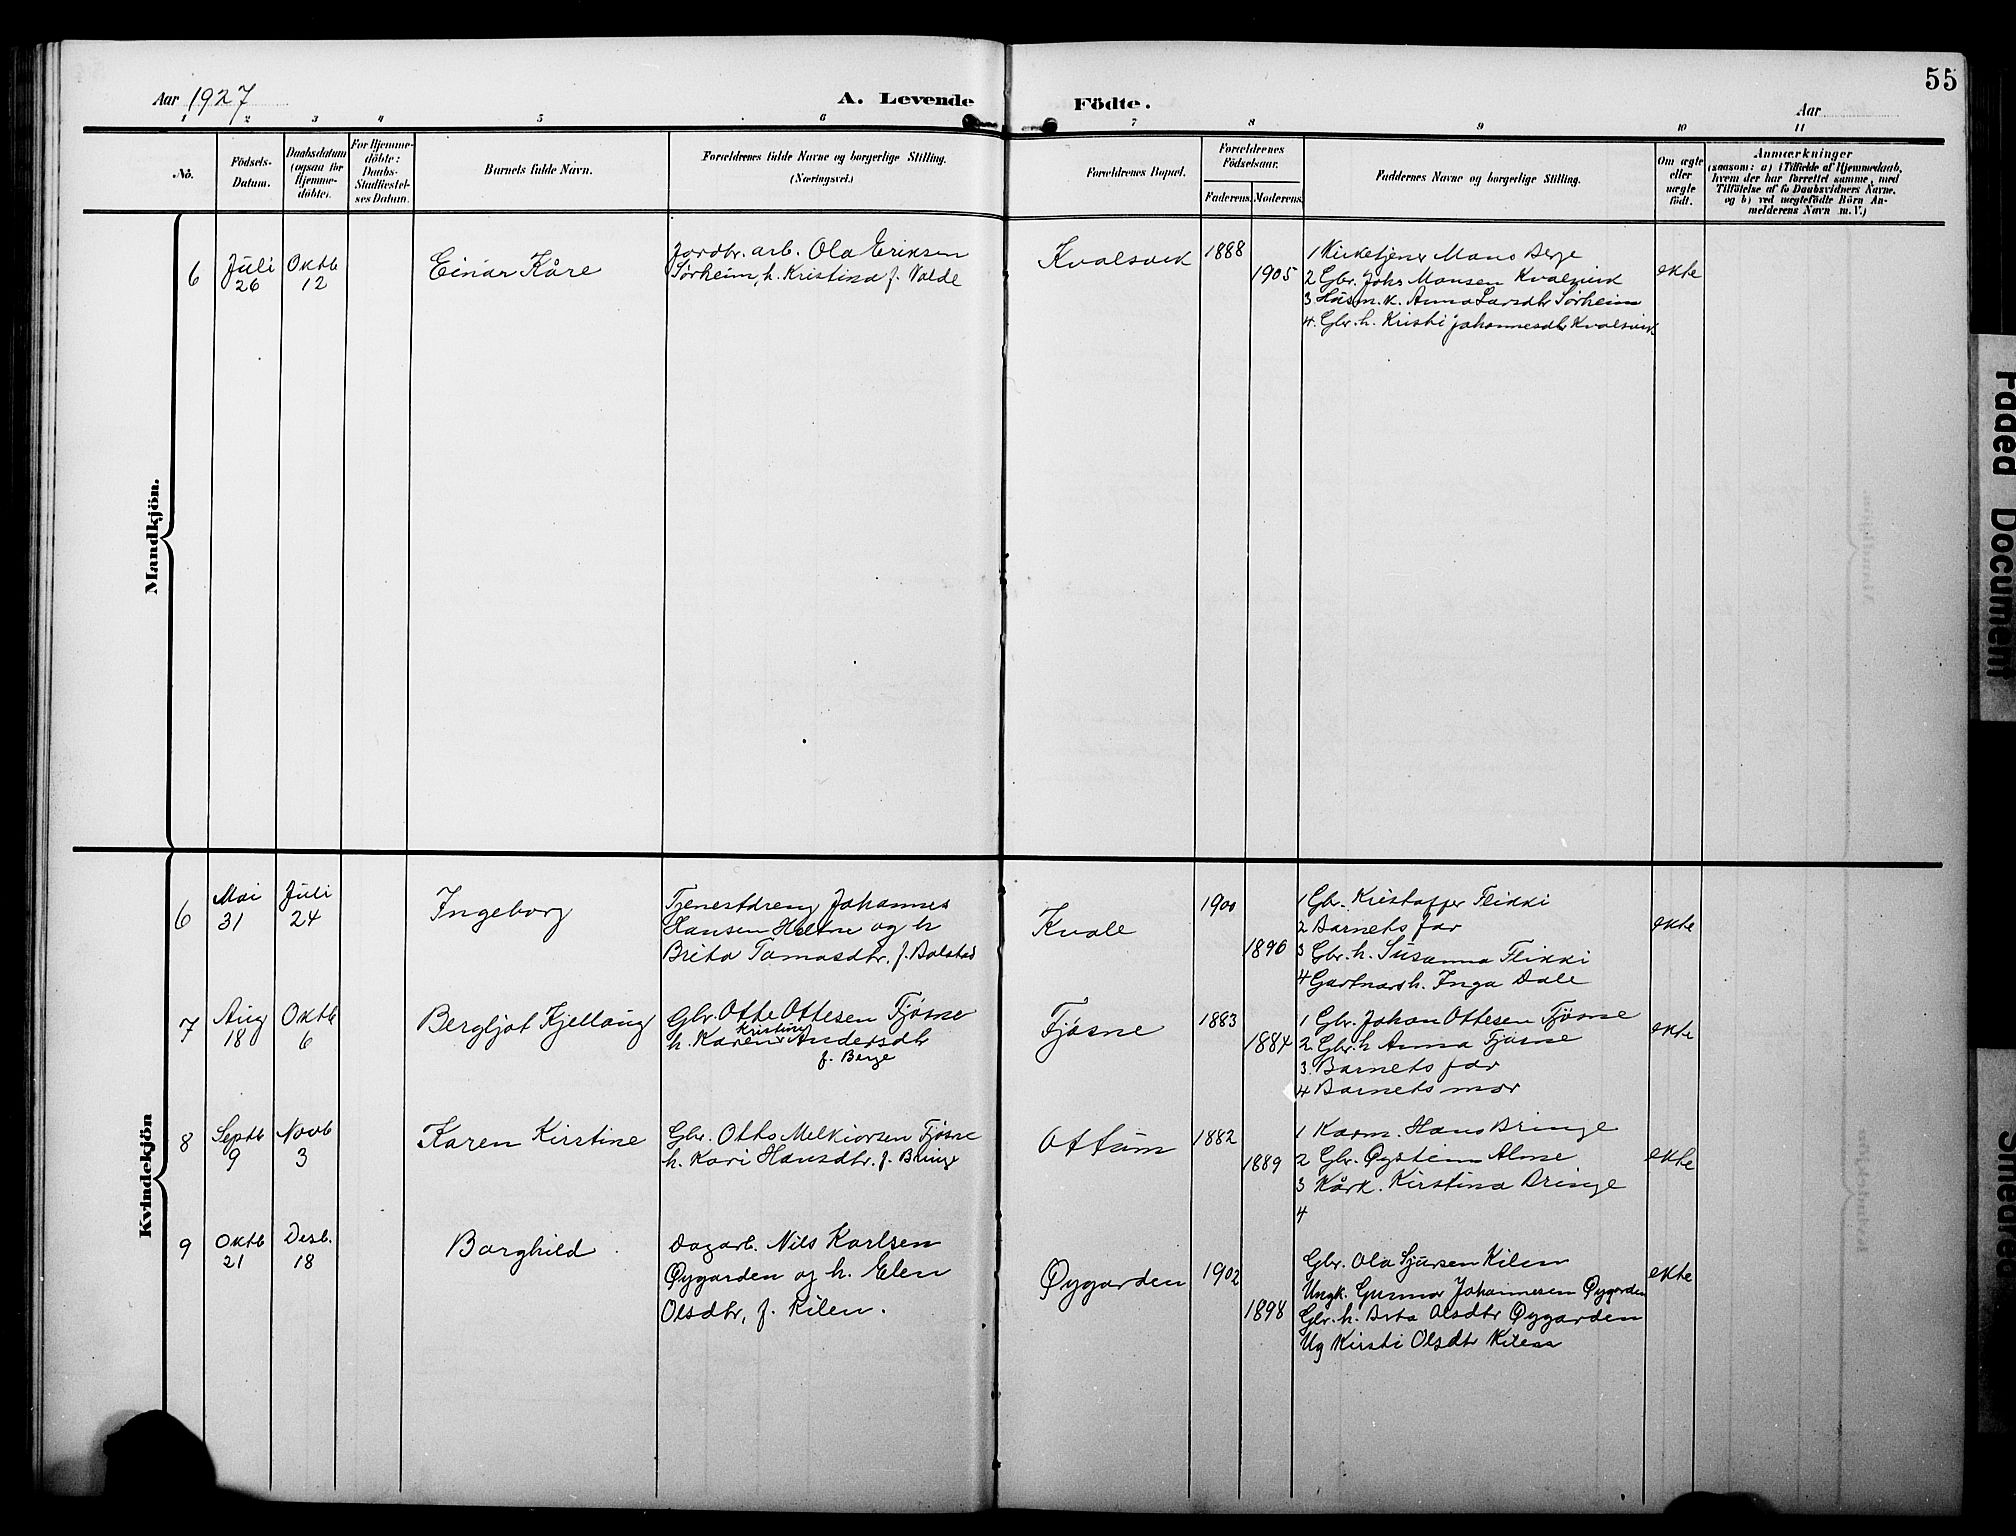 55
Aar 1927
A. Levende
Födte.
Aar
1 2 3 4 5 6 7 8 9 10 11
No.
Födsels-
Datum.
Daabsdatum
(ogsaa for
Hjemme-
döbte).
For Hjemme-
döbte:
Daabs-
Stadfæstel-
ses Datum.
Barnets fulde Navn.
Forældrenes fulde Navne og borgerlige Stilling.
(Næringsvei.)
Forældrenes Bopæl.
Forældrenes
Födselsaar.
Faderens. Moderens.
Faddernes Navne og borgerlige Stilling.
Om ægte
eller
uægte
födt.
Anmærkninger
(saasom: a) i Tilfælde af Hjemmedaab,
hvem der har forrettet samme, med
Tilföielse af to Daabsvidners Navne,
og b) ved uægtefödte Börn An-
melderens Navn m. V.)
Mandkjön.
6
Juli
26
Oktb
12
Einar Kåre
Jordbr. arb. Ola Eriksen
Sørheim, h. Kristina f. Valde
Kvalsvik
1888
1905
1 Kirketjener Mons Berge
2 Gbr. Johs Monsen Kvalsvik
3. Husm. k. Anna Larsdtr Sørheim
4. Gbr. h. Kristi Johannesdtr Kvalsvik
ekte
Kvindekjön
6
Mai
31
Juli
24
Ingeborg
Tjenestdreng Johannes
Hansen og h
Brita Tomasdtr. f. Bolstad
Kvale
1900
1896
1 Gbr. Kristoffer Flikki
2 Barnets far
3 Gbr. h. Susanna Flikki
4 Gartnarsh. Inga Dale
ekte
7
Aug
18
Oktb
6
Bergljot Kjellaug
Gbr. Otte Ottesen Fjøsne
h. Karen Kristine Andersdtr
f. Berge
Fjøsne
1883
1884
1 Gbr. Johan Ottesen Fjøsne
2 Gbr. h Anna Fjøsne
3. Barnets far
4 Barnets mor
ekte
8
Septb
9
Novb
3
Karen Kirstine
Gbr. Otto Melkiorsen Fjøsne
h. Kari Hansdtr. f. Bringe
Ottum
1882
1889
1 Kaarm. Hans Bringe
2 Gbr. Øystein Alme
3 Kårk. Kirstina Bringe
4
ekte
9
Oktb
21
Desb.
18
Borghild
Dagarb. Nils Karlsen
Øygarden og h. Elen
Olsdtr, f. Kilen.
Øygarden
1902
1898
Gbr. Ola Sjursen Kilen
Ungk. Gunnar Johannesen Øygarden
Gbr. h. Brita Olsdtr Øygarden
Ug Kirsti Olsdtr Kilen
ekte
Faded Document
Smeared